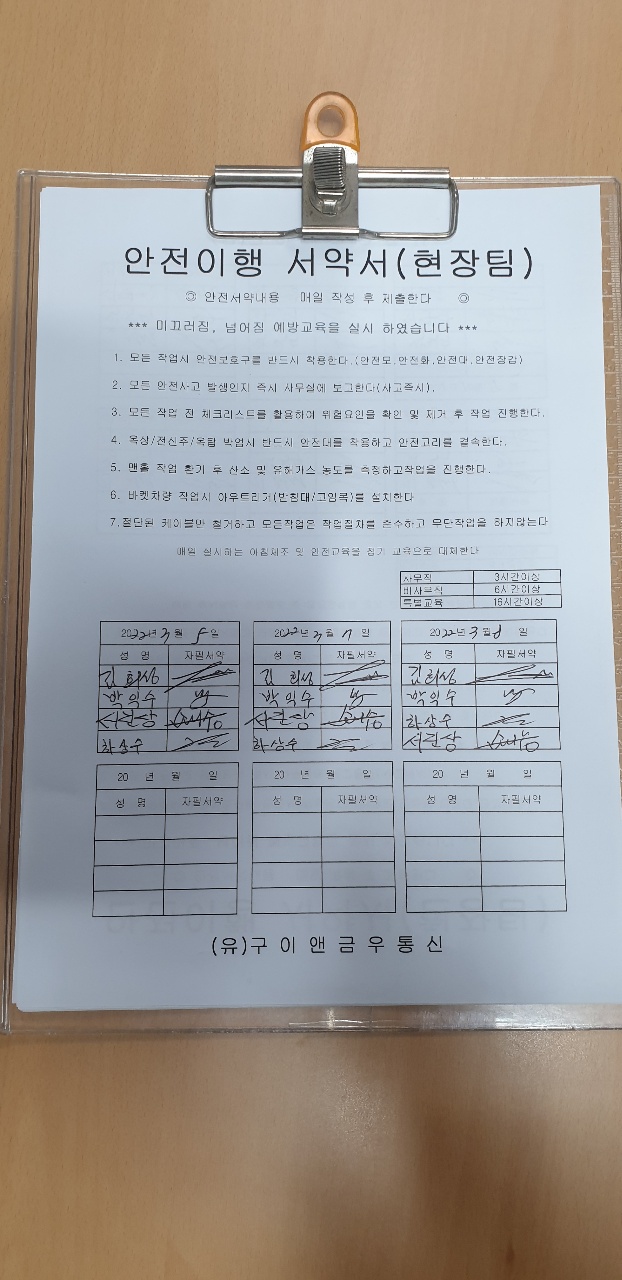 안전이행 서약서(현장팀)
◎ 안전서약내용 매일 작성 후 제출한다 ◎
*** 미끄러짐, 넘어짐 예방교육을 실시 하였습니다 ***
1. 모든 작업시 안전보호구를 반드시 착용한다.(안전모,안전화,안전대,안전장갑)
2. 모든 안전사고 발생인지 즉시 사무실에 보고한다(사고즉시).
3. 모든 작업 전 체크리스트를 활용하여 위험요인을 확인 및 제거 후 작업 진행한다.
4. 옥상/전신주/옥탑 작업시 반드시 안전대를 착용하고 안전고리를 결속한다.
5. 맨홀 작업 환기 후 산소 및 유해가스 농도를 측정하고작업을 진행한다.
6. 바켓차량 작업시 아우트리거(받침대/고임목)를 설치한다
7.절단된 케이블만 철거하고 모든작업은 작업절차를 준수하고 무단작업을 하지않는다
매일 실시하는 아침체조 및 안전교육을 정기 교육으로 대체한다
사무직 3시간이상
비사무직 6시간이상
특별교육 16시간이상
2022년 3월 5일 2022년 3월 7일 2022년 3월 8일
성 명 자필서약 성 명 자필서약 성 명 자필서약
김희성 김희성 김희성
박익수 박익수 박익수
하상수
하상수
20 년 월 일 20 년 월 일 20 년 월 일
성 명 자필서약 성 명 자필서약 성 명 자필서약
(유)구이앤금우통신